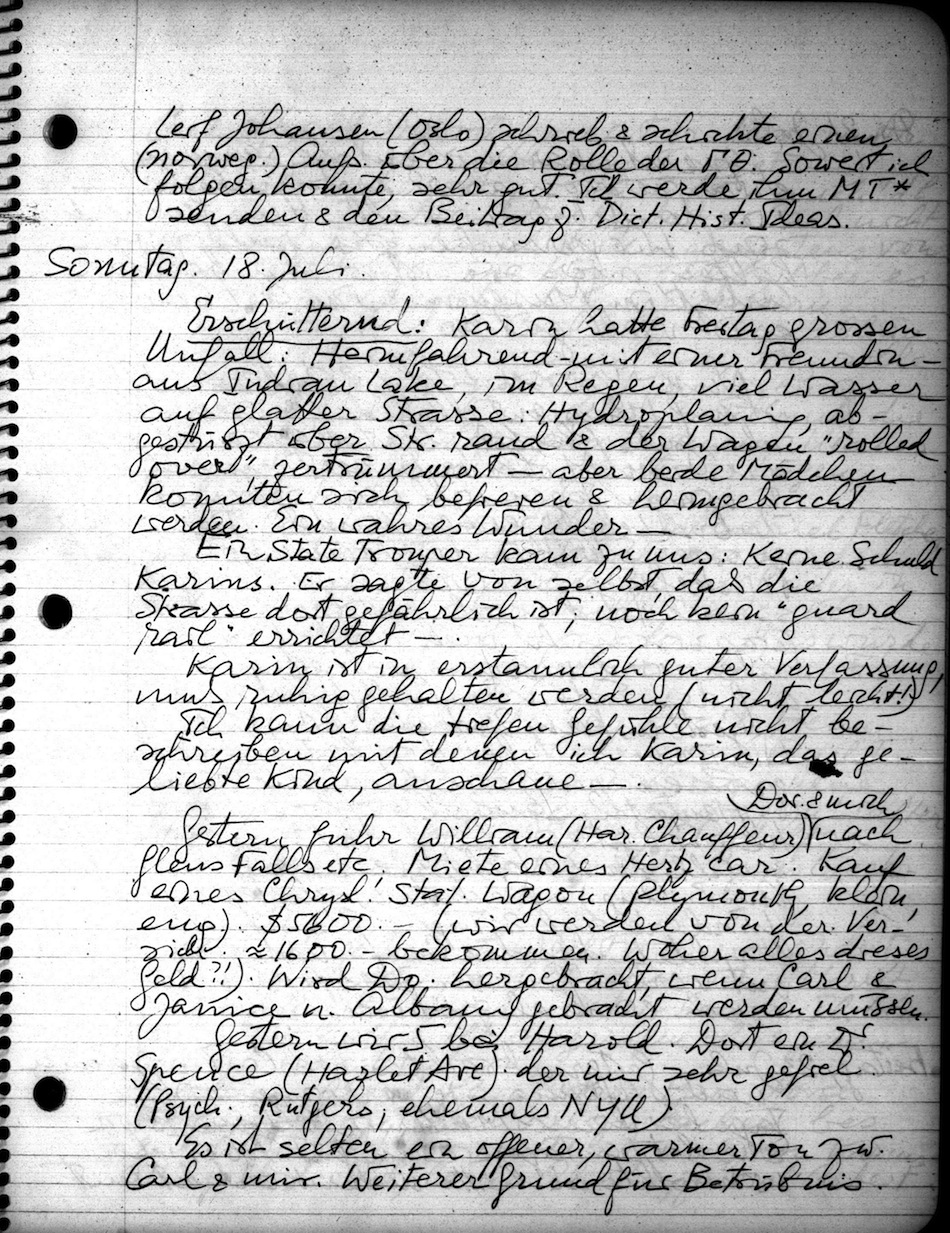 Leif Johansen (Oslo) schrieb & schickte einen
(norweg.) Aufs. über die Rolle der Γ Θ. Soweit ich
folgen konnte, sehr gut. Ich werde ihm MT*
senden & den Beitrag z. Dict. Hist. Ideas.
Sonntag. 18. Juli.
Erschütternd: Karin hatte Freitag grossen
Unfall: Heimfahrend - mit einer Freundin -
aus Indian Lake, im Regen, viel Wasser
auf glatter Strasse: Hydroplaning, ab-
gestürzt über Str. rand & der Wagen "rolled
over", zertrümmert — aber beide Mädchen
konnten sich befreien & heimgebracht
werden. Ein wahres Wunder —
Ein State Trooper kam zu uns: Keine Schuld
Karins. Er sagte von selbst, daß die
Strasse dort gefährlich ist; noch kein "guard
rail" errichtet — .
Karin ist in erstaunlich guter Verfassung,
muss ruhig gehalten werden (nicht leicht!)
Ich kann die tiefen Gefühle nicht be-
schreiben mit denen ich Karin, das ge-
liebte Kind, anschaue — .
Dor. & mich
Gestern fuhr William (Har. Chauffeur) nach
Glens Falls etc. Miete eines Hertz car. Kauf
eines Chrysl. Stat. Wagon (Plymouth, klein,
eng). $5600.- (wir werden von der Ver-
sich. ≈ 1600.- bekommen. Woher alles dieses
Geld?!). Wird Do. hergebracht, wenn Carl &
Janice n. Albany gebracht werden müssen.
Gestern wir 5 bei Harold. Dort ein Dr.
Spence (Hazlet Ave). der mir sehr gefiel.
(Psych., Rutgers, ehemals NYU)
Es ist selten ein offener, warmer Ton zw.
Carl & mir. Weiterer Grund für Betrübnis.